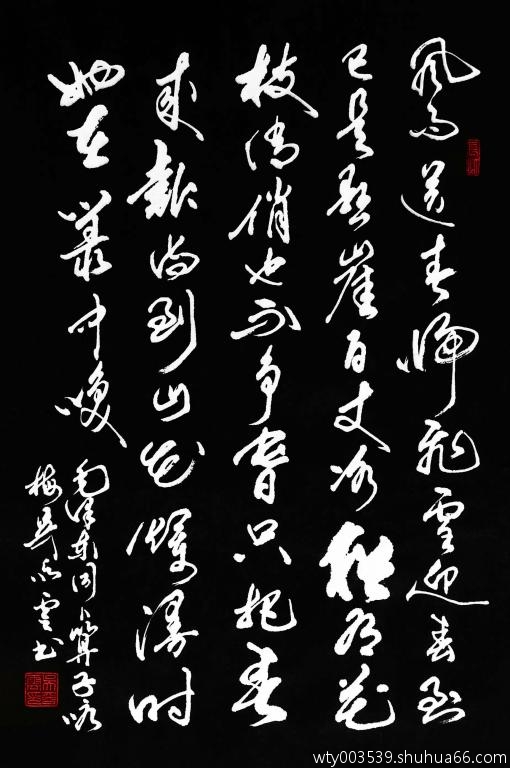 风雨送春归飞雪迎春到
已是悬崖百丈冰犹有花
枝俏俏也不争春只把春
来报待到山花烂漫时
她在叢中笑
毛泽东词卜算子咏
梅 雲书
wty003539.shuhua66.com